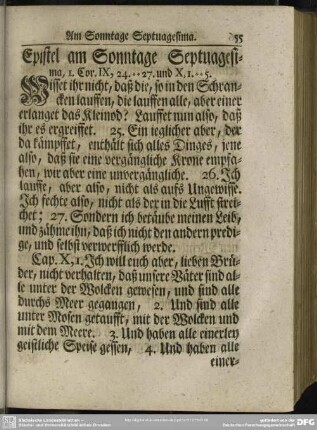 Am Sonntage Septuagesima. 55
Epistel am Sonntage Septuagesi-
ma, 1. Cor. IX, 24. -- 27. und X, 1. -- 5.
Wisset ihr nicht, daß die, so in den Schran-
cken lauffen, die lauffen alle, aber einer
erlanget das Kleinod? Lauffet nun also, daß
ihr es ergreiffet. 25. Ein ieglicher aber, der
da kämpffet, enthält sich alles Dinges, jene
also, daß sie eine vergängliche Krone empfa-
hen, wir aber eine unvergängliche. 26. Ich
lauffe, aber also, nicht als aufs Ungewisse.
Ich fechte also, nicht als der in die Lufft strei-
chet; 27. Sondern ich betäube meinen Leib,
und zähme ihn, daß ich nicht den andern predi-
ge, und selbst verwerfflich werde.
Cap. X, 1. Ich will euch aber, lieben Brü-
der, nicht verhalten, daß unsere Väter sind al-
le unter der Wolcken gewesen, und sind alle
durchs Meer gegangen, 2. Und sind alle
unter Mosen getaufft, mit der Wolcken und
mit dem Meere. 3. Und haben alle einerley
geistliche Speise gessen, 4. Und haben alle
einer-